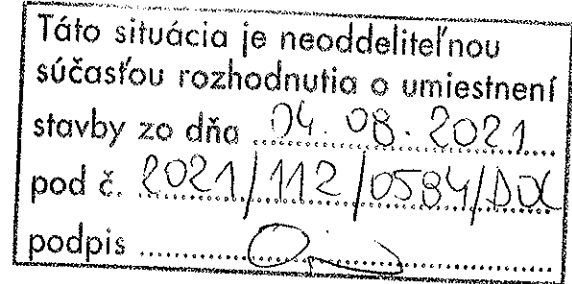 Táto situácia je neoddeliteľnou
súčasťou rozhodnutia o umiestnení
stavby zo dňa 04.08.2021
pod č. 2021/112/0584/DOX
podpis